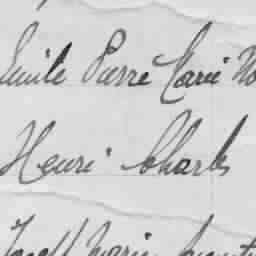 Emile Pierre Marie
Henri Charles
Joseph Marie